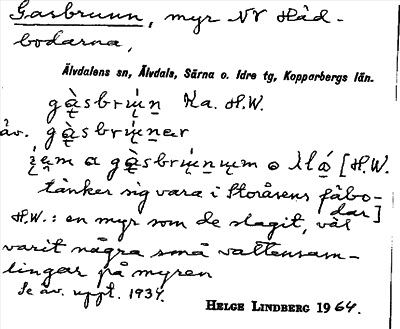 Gasbrunn, myr NV Håd-
bodarna,
Älvdalens sn, Älvdals, Särna o. Idre tg, Kopparbergs län.
gàsbrụ́ṇ Ka. H.W.
äv. gàsbrụ́ṇer
a gàsbrụ́ṇum o [H.W.
tänker sig vara i Storåsens fäbo-
dar]
H.W.: en myr som de slagit, väl
varit några små vattensam-
lingar på myren
Se äv. uppt. 1934.
HELGE LINDBERG 1964.